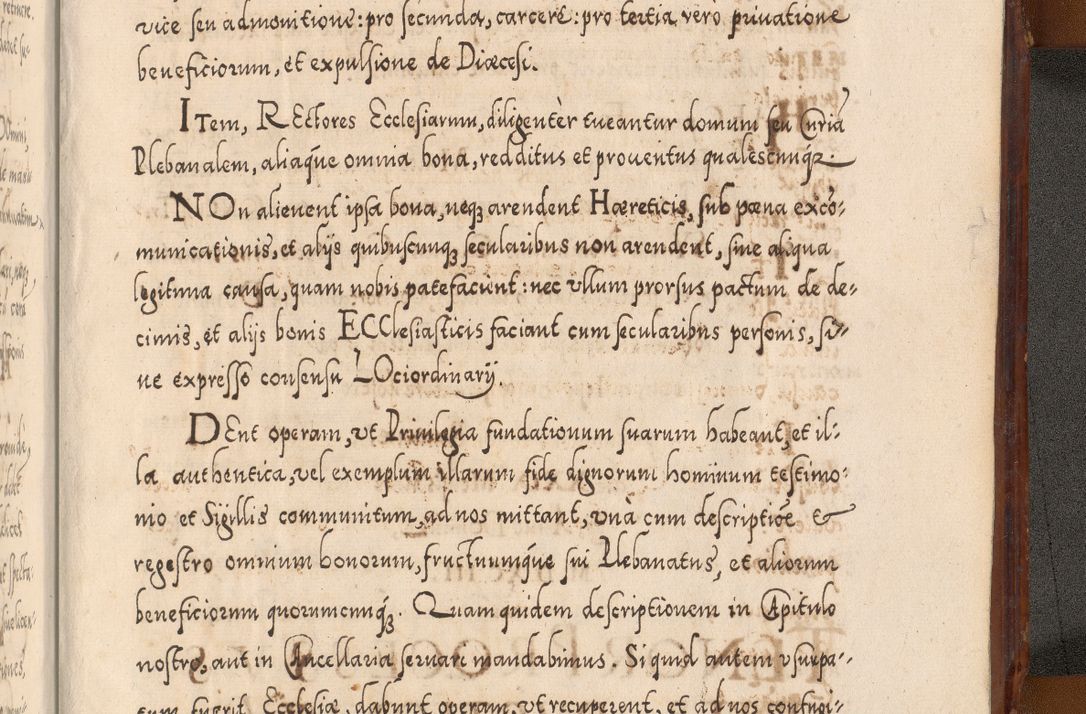 vice seu admonitione: pro secunda, carcere: pro tertia, verò priuatione
beneficiorum, et expulsione de Diœcesi.
ITem, REctores Ecclesiarum, diligentèr tueantur domum seu Curiā
Plebanalem, aliaq́ue omnia bona, redditus et prouentus qualescunq꜑.
NOn alienent ipsa bona, neq꜑ arendent Hæreticis, sub pœna exco-
municationis, et alijs quibuscunq꜑ secularibus non arendent, sine aliqua
legitima causa, quam nobis patefaciunt: nec vllum prorsus pactum de de-
cimis, et alijs bonis ECClesiasticis faciant cum secularibus personis, si-
ne expresso consensu LOciordinarij.
DEnt operam, vt Priuilegia fundationum suarum habeant, et il-
la authentica, vel exemplum illarum fide dignorum hominum testimo-
nio et Sigillis communitum, ad nos mittant, vnà cum descriptiōe &
regestro omnium bonorum, fructuumq́ue sui Plebanatus, et aliorum
beneficiorum quorumcunq꜑. Quam quidem descriptionem in Capitulo
nostro, aut in Cancellaria seruari mandabimus. Si quid autem vsurpa-
tum fuerit Ecclesiæ, dabunt operam, vt recuperent, et ad nos confugi-